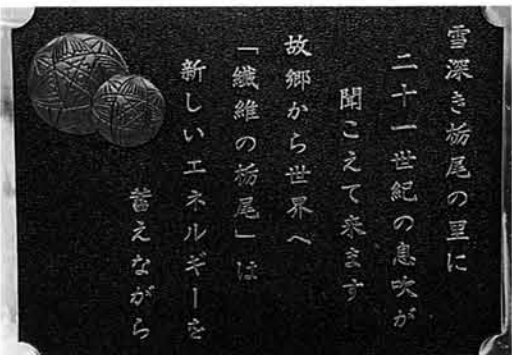 雪深き栃尾の里に
二十一世紀の息吹が
聞こえて来ます
故郷から世界へ
「繊維の栃尾」は
新しいエネルギーを
蓄えながら